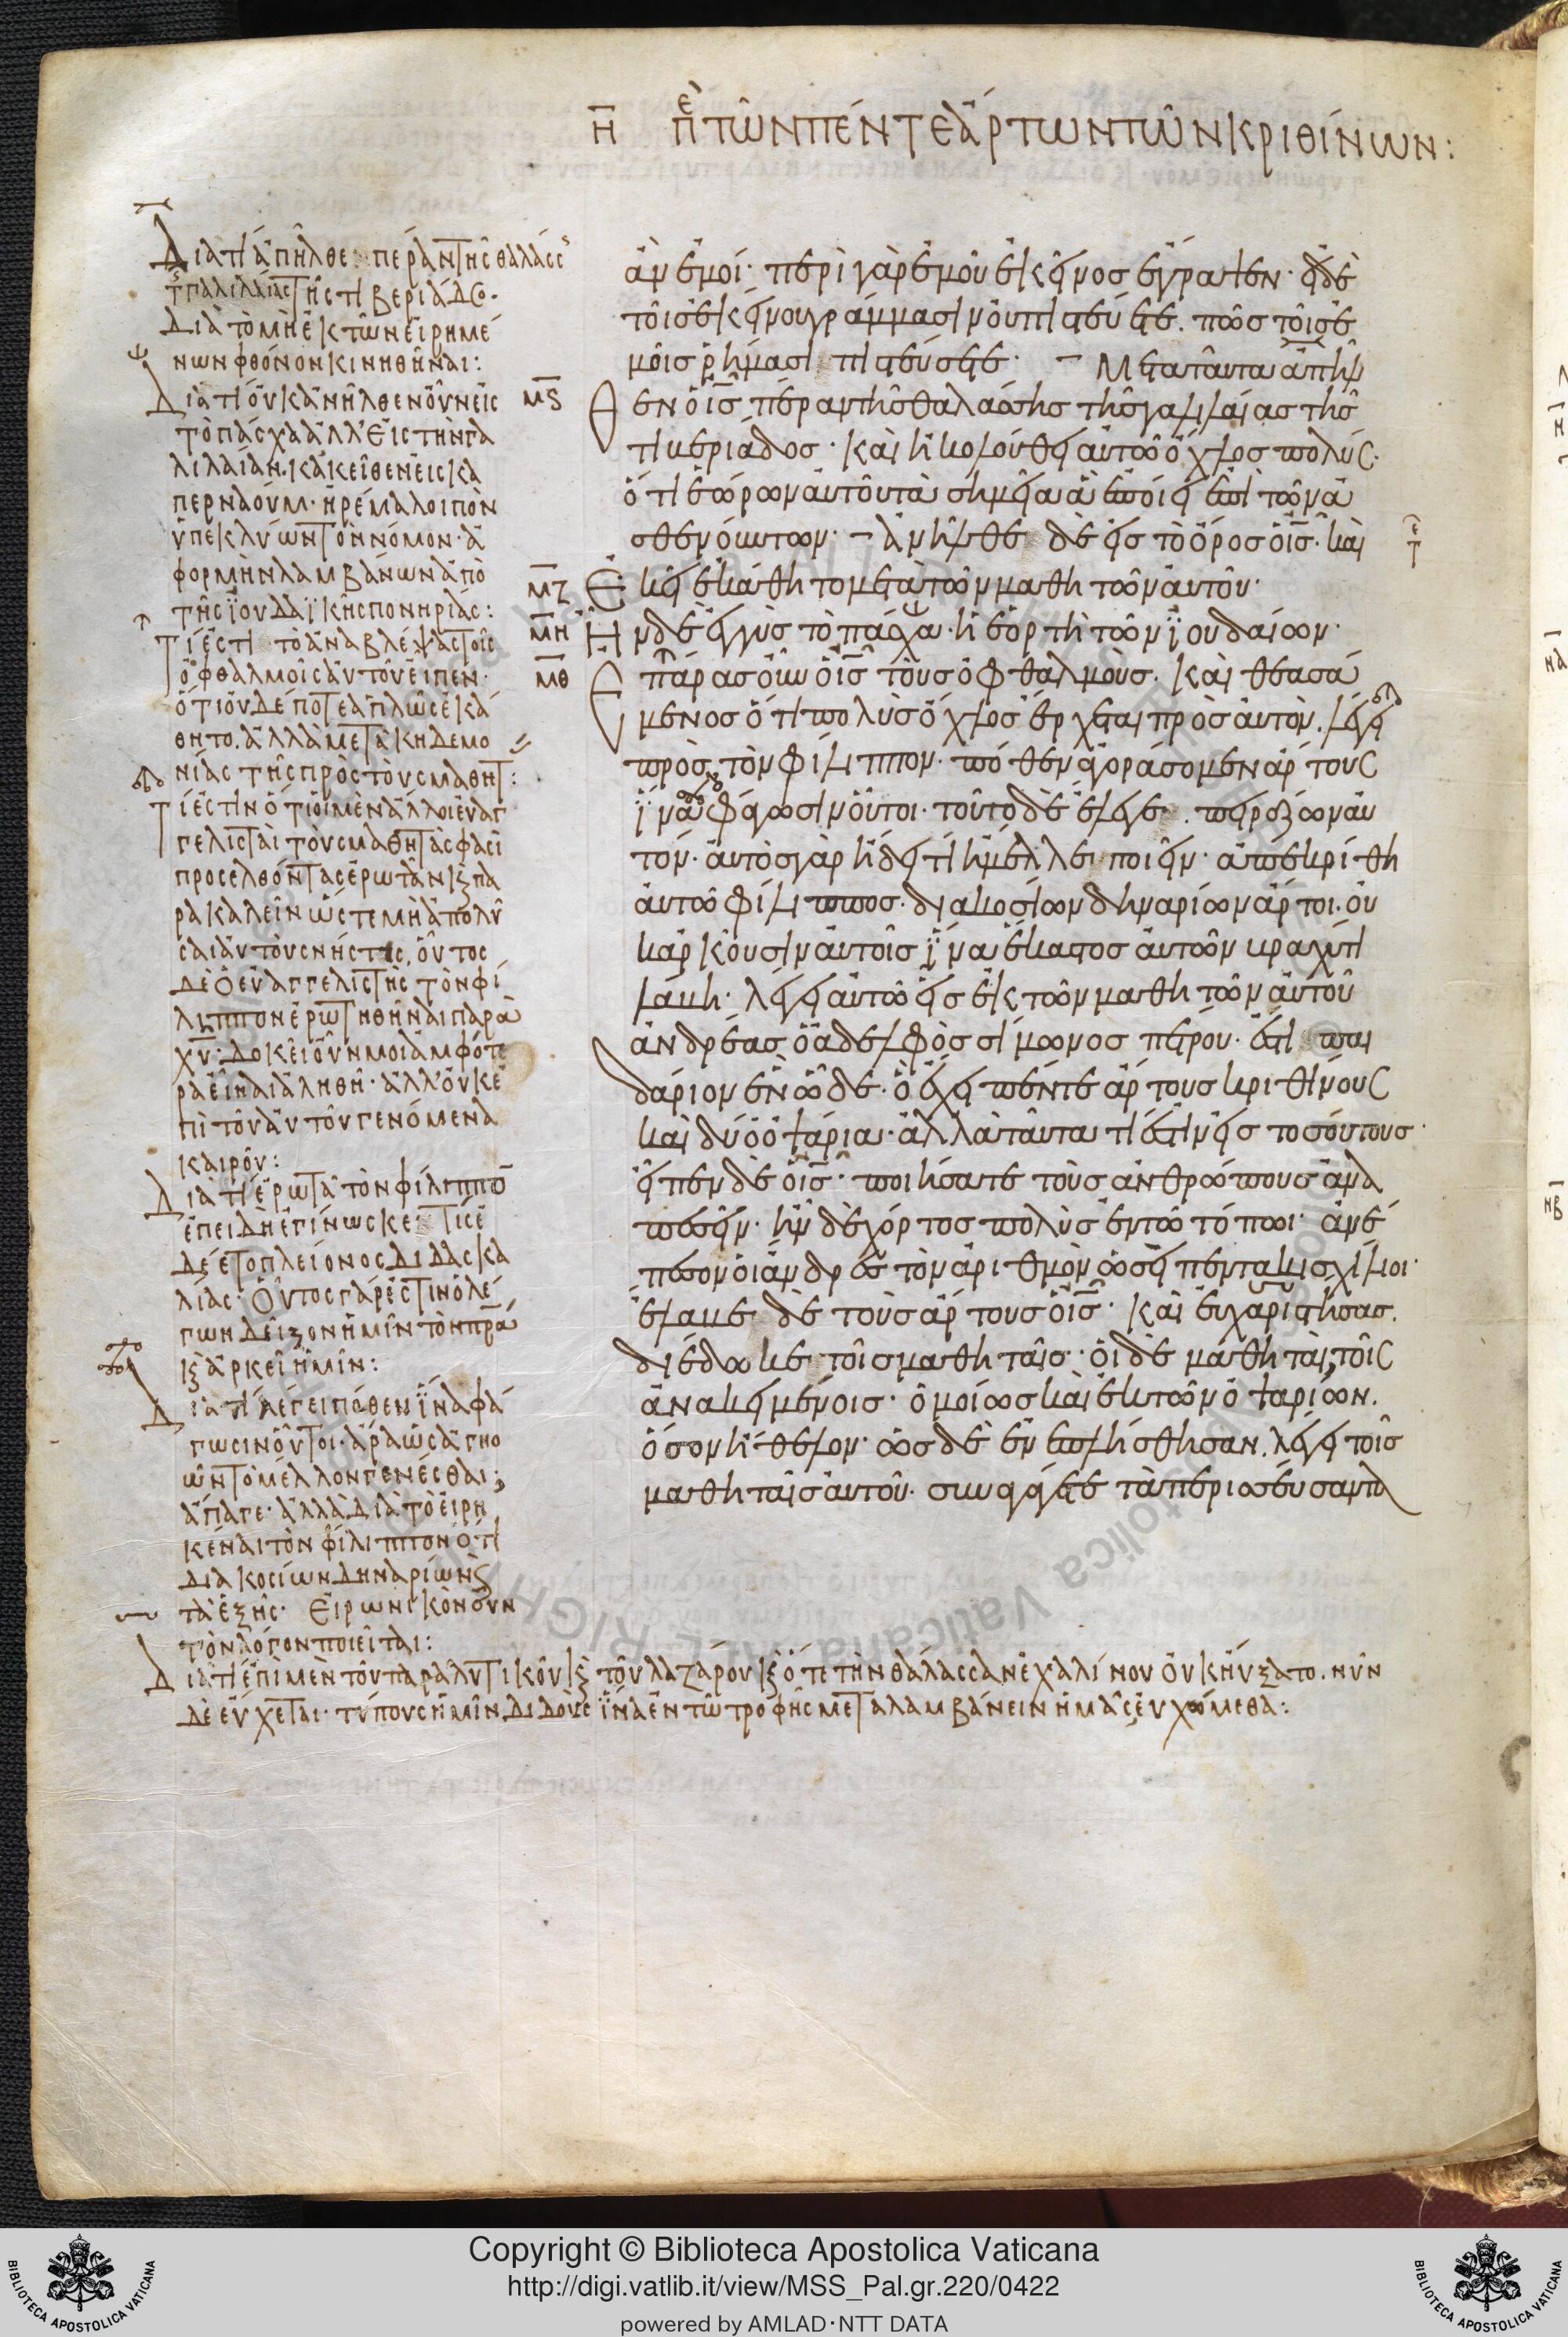 η̅ πὲ τῶν πέντε ἄρτων τῶν κριθίνων:
Διατί ἀπῆλθε πέραν τῆς θαλάσς
τῆς γαλιλαίας τῆς τιβεριάδο·
διὰ τὸ μὴ ἐκ τῶν εἰρημέ
νων φθόνον κινηθῆναι:
Διατί οὐκ ἀνῆλθεν οὖν εἰς
τὸ πάσχα ἀλλ' εἰς τὴν γα
λιλαίαν. κἀκεῖθεν εἰς κα
περναούμ· ἠρέμα λοιπὸν
ὑπεκλύων τὸν νόμον· ἀ
φορμὴν λαμβάνων ἀπὸ
τῆς ϊουδαϊκῆς πονηρίας:
Τί ἐστι τὸ ἀναβλέψας τοῖς
ὀφθαλμοῖς αὐτοῦ εἶπεν·
ὅτι οὐδέποτε ἁπλῶς ἐκά
θητο. ἀλλὰ μετὰ κηδεμο
νίας τῆς πρὸς τοὺς μαθητ:
Τί ἐστιν ὅτι οἱ μὲν ἄλλοι εὐαγ
γελισταὶ τοὺς μαθητάς φασι
προσελθόντας ἐρωτᾶν κ̀ πα
ρακαλεῖν ὥστε μὴ ἀπολῦ
σαι αὐτοὺς νήστις, οὗτος
δὲ ὁ εὐαγγελιστὴς τὸν φί
λιππον ἐρωτηθῆναι παρὰ
χυ̅· δοκεῖ οὖν μοι ἀμφότε
ρα εἶναι ἀληθῆ· ἀλλ' οὐκ ἐ
πὶ τοῦ αὐτοῦ γενόμενα
καιροῦ:
Διατί ἐρωτᾶ τὸν φίλιππο̅
ἐπειδὴ ἐγίνωσκε τίς ἐ
δέετο πλείονος διδασκα
λίας· Οὗτος γάρ ἐστιν ὁ λέ
γων δεῖξον ἡμῖν τὸν πρ̅α
κ̀ ἀρκεῖ ἡμῖν:
Διατί λέγει πόθεν ϊνα φά
γωσιν οὗτοι· ἆρα ὡς ἀγνο
ῶν τὸ μέλλον γενέσθαι;
ἄπαγε· ἀλλὰ διὰ τὸ εἰρη
κέναι τὸν φίλιππον ὅτι
διακοσίων δηναρίων κ̀
τὰ ἑξῆς· Εἰρωνικὸν οὖν
τὸν λόγον ποιεῖται:
Διατί ἐπὶ μὲν τοῦ παραλυτικοῦ κ̀ τοῦ λαζάρου κ̀ ὅτε τὴν θάλασσαν ἐχαλίνου οὐκ ηὔξατο. νῦν
δὲ εὔχεται· τύπους ἡμῖν διδοὺς ϊνα ἐν τῶ τροφῆς μεταλαμβάνειν ἡμᾶς εὐχώμεθα:
ἂν ἐμοί· περὶ γὰρ ἐμοῦ ἐκεῖνος ἔγραψεν· εἰ δὲ
τοῖς ἐκείνου γράμμασιν οὐ πιστεύετε. πῶς τοῖς ἐ
μοῖς ῥήμασι πιστεύσετε· Μετα ταῦτα ἀπῆλ
μϛ̅ θεν ὁ ι̅ς̅ πέραν τῆς θαλάσσης τῆς γαλιλαίας τῆς
τιβεριάδος· καὶ ἠκολούθει αὐτῶ ὄχλος πολύς·
ὅτι ἑώρων αὐτοῦ τὰ σημεῖα ἃ ἐποίει ἐπὶ τῶν ἀ
σθενόυντων· ἀνῆλθε δὲ εἰς τὸ ὄρος ὁ ι̅ς̅. καὶ
μζ̅ Ἐκεῖ ἐκάθητο μετὰ τῶν μαθητῶν αὐτοῦ·
μη̅ Ἦν δὲ ἐγγὺς τὸ πάσχα· ἡ ἑορτὴ τῶν ϊουδαίων·
μθ̅ Ἐπάρας οὖν ὁ ι̅ς̅ τοὺς ὀφθαλμοὺς. καὶ θεασά
μενος ὅτι πολὺς ὄχλος ἔρχεται πρὸς αὐτὸν. λέγει
πρὸς τὸν φίλιππον. πόθεν ἀγοράσομεν ἄρτους
ϊνα φάγωσιν οὗτοι. τοῦτο δὲ ἔλεγε. πειράζων αὐ
τόν. αὐτὸς γὰρ ἤδει τί ἤμελλε ποιεῖν· ἀπεκρίθη
αὐτῶ φίλιππος. διακοσίων δηναρίων ἄρτοι. οὐκ
ἀρκοῦσιν αὐτοῖς ϊνα ἕκαστος αὐτῶν βραχύ τι
λάβη· λέγει αὐτῶ εἷς ἐκ τῶν μαθητῶν αὐτοῦ
ἀνδρέας ὁ ἀδελφὸς σίμωνος πέτρου. ἔστι παι
δάριον ἓν ὧδε. ὃ ἔχει πέντε ἄρτους κριθίνους
καὶ δύο ὀψάρια· ἀλλὰ ταῦτα τί ἐστιν εἰς τοσούτους·
εἶπεν δὲ ὁ ι̅ς̅· ποιήσατε τοὺς ἀνθρώπους ἀνα
πεσεῖν· ἦν δὲ χόρτος πολὺς ἐν τῶ τόπωι· ἀνέ
πεσον οἱ ἄνδρες τὸν ἀριθμὸν ὡσεὶ πεντακισχίλιοι·
ἔλαβε δὲ τοὺς ἄρτους ὁ ι̅ς̅· καὶ εὐχαριστήσας.
διέδωκε τοῖς μαθηταῖς· οἱ δὲ μαθηταὶ, τοῖς
ἀνακειμένοις· ὁμοίως καὶ ἐκ τῶν ὀψαρίων.
ὅσον ἤθελον· ὡς δὲ ἐνεπλήσθησαν. λέγει τοῖς
μαθηταῖς αὐτοῦ· συναγάγετε τὰ περισσεύσαντα
Copyright © Biblioteca Apostolica Vaticana
http://digi.vatlib.it/view/MSS_Pal.gr.220/0422
powered by AMLAD·NTT DATA
BIBLIOTECA APOSTOLICA VATICANA
BIBLIOTECA APOSTOLICA VATICANA